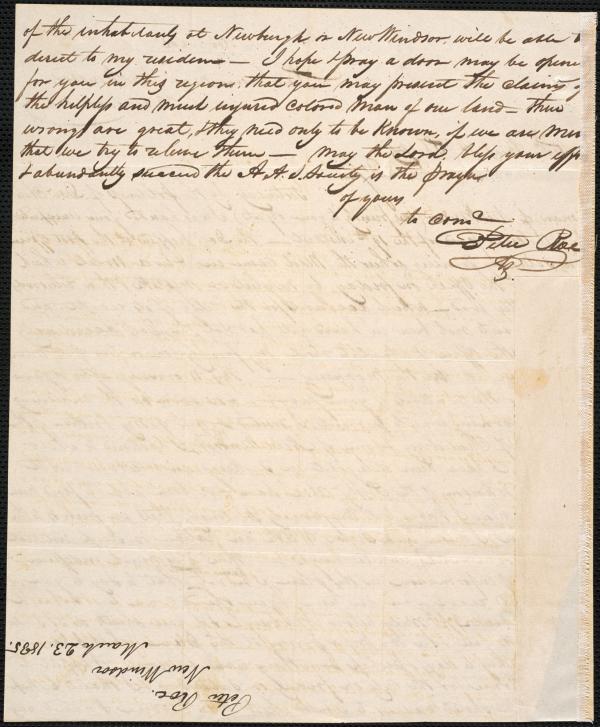 of the inhabitants at Newburgh or New Windsor will be able
direct to my residence — I hope & pray a door may be opene
for you in this regions, that you may present the claims
the helpless and much injured colored man of our land — their
wrongs are great, & they need only to be known, if we are men
that we try to releive them — may the Lord bless your
& abundantly succeed the A. A. Society is the prayer
of yours
to com<sup>d</sup>
Peter Roe
Peter Roe.
New Windsor
March 23. 1835.